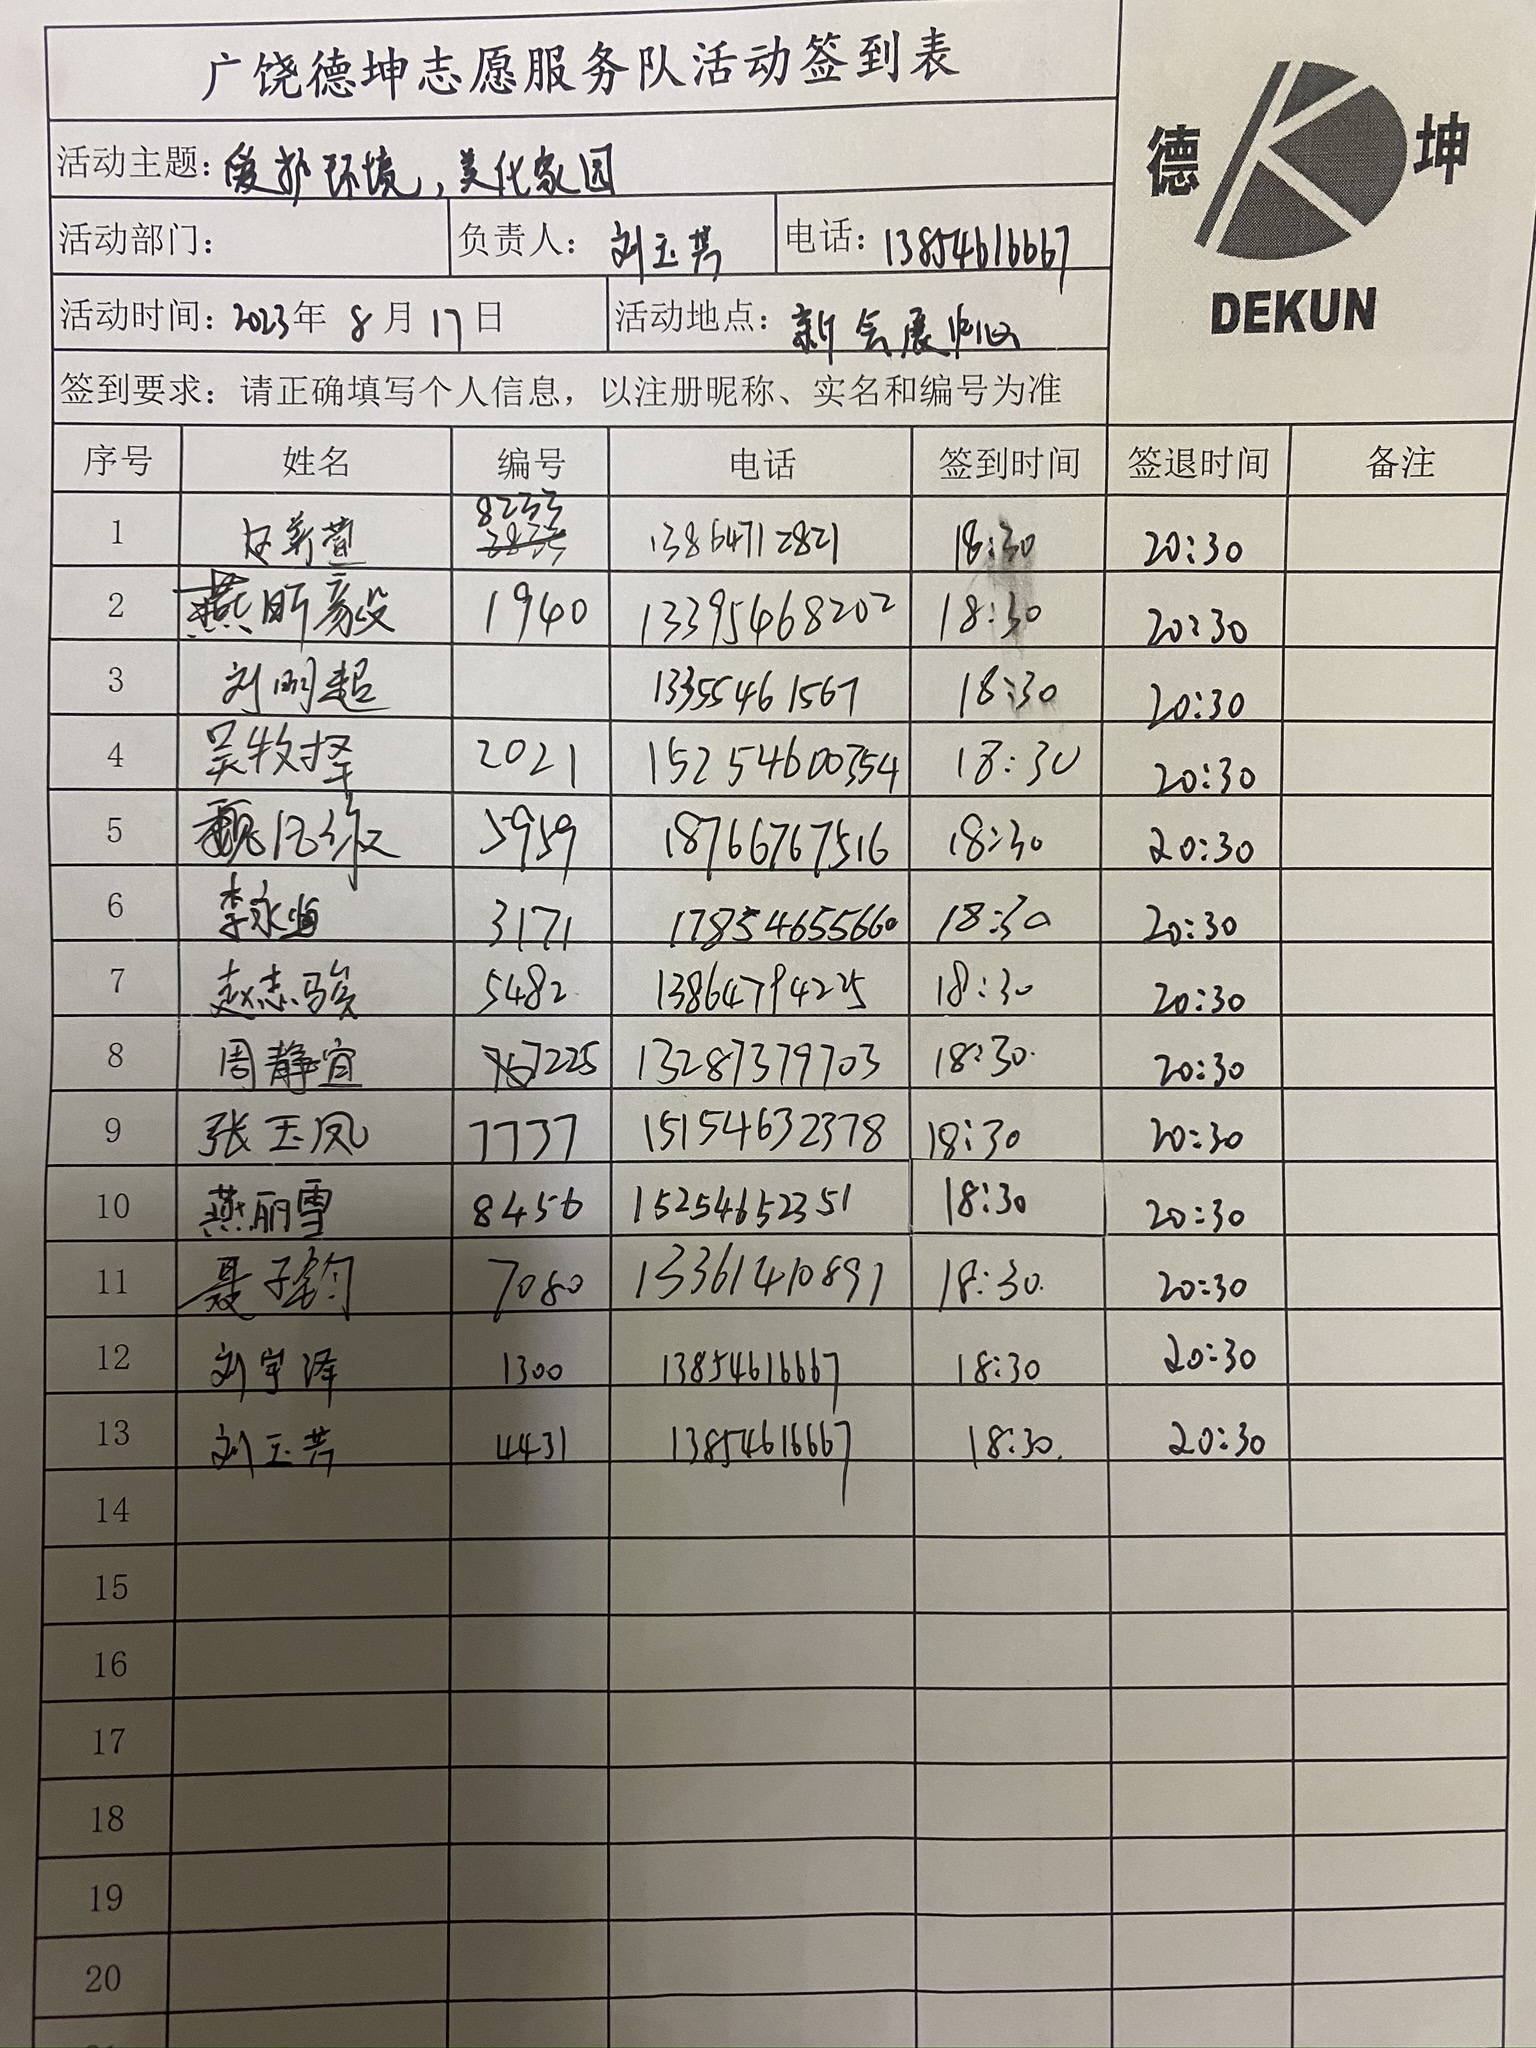 广饶德坤志愿服务队活动签到表
德 坤
DEKUN
活动主题：爱护环境，美化家园
活动部门： 负责人：刘玉芳 电话：13854616667
活动时间：2023年8月17日 活动地点：新会展中心
签到要求：请正确填写个人信息，以注册昵称、实名和编号为准
序号 姓名 编号 电话 签到时间 签退时间 备注
1 8233 13864712821 18:30 20:30
2 燕昕毅 1940 13395468202 18:30 20:30
3 刘明超 13355461567 18:30 20:30
4 吴牧择 2021 15254600354 18:30 20:30
5 魏 5959 18766767516 18:30 20:30
6 李永 3171 17854655660 18:30 20:30
7 赵志骏 5482 13864794225 18:30 20:30
8 周静宜 7225 13287379703 18:30 20:30
9 张玉凤 7737 15154632378 18:30 20:30
10 燕丽雪 8456 15254652351 18:30 20:30
11 聂子钧 7080 13361410891 18:30 20:30
12 刘宇泽 1300 13854616667 18:30 20:30
13 刘玉芳 4431 13854616667 18:30 20:30
14
15
16
17
18
19
20